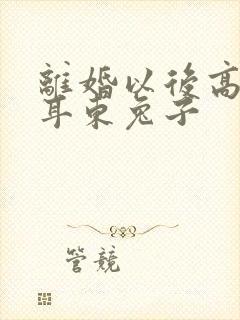 離婚以後高
耳東兔子
管競